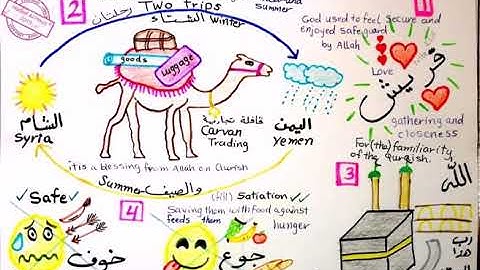 2
Two trips رحلتان
summer
الشتاء Winter
goods
Luggage
الشام
Syria
قافلة تجارية
Carvan
Trading
اليمن
Yemen
it is a blessing from Allah on Qurish
Summer والصيف
1
God used to feel secure and
enjoyed safeguard
by Allah
Love
قريش
gathering and
closeness
For (the) familiarity
of the Quraish.
3
الله
رب
هذا
Safe
خوف
4
(fill) Satiation
Saving them with food against
feeds them
hunger
جوع